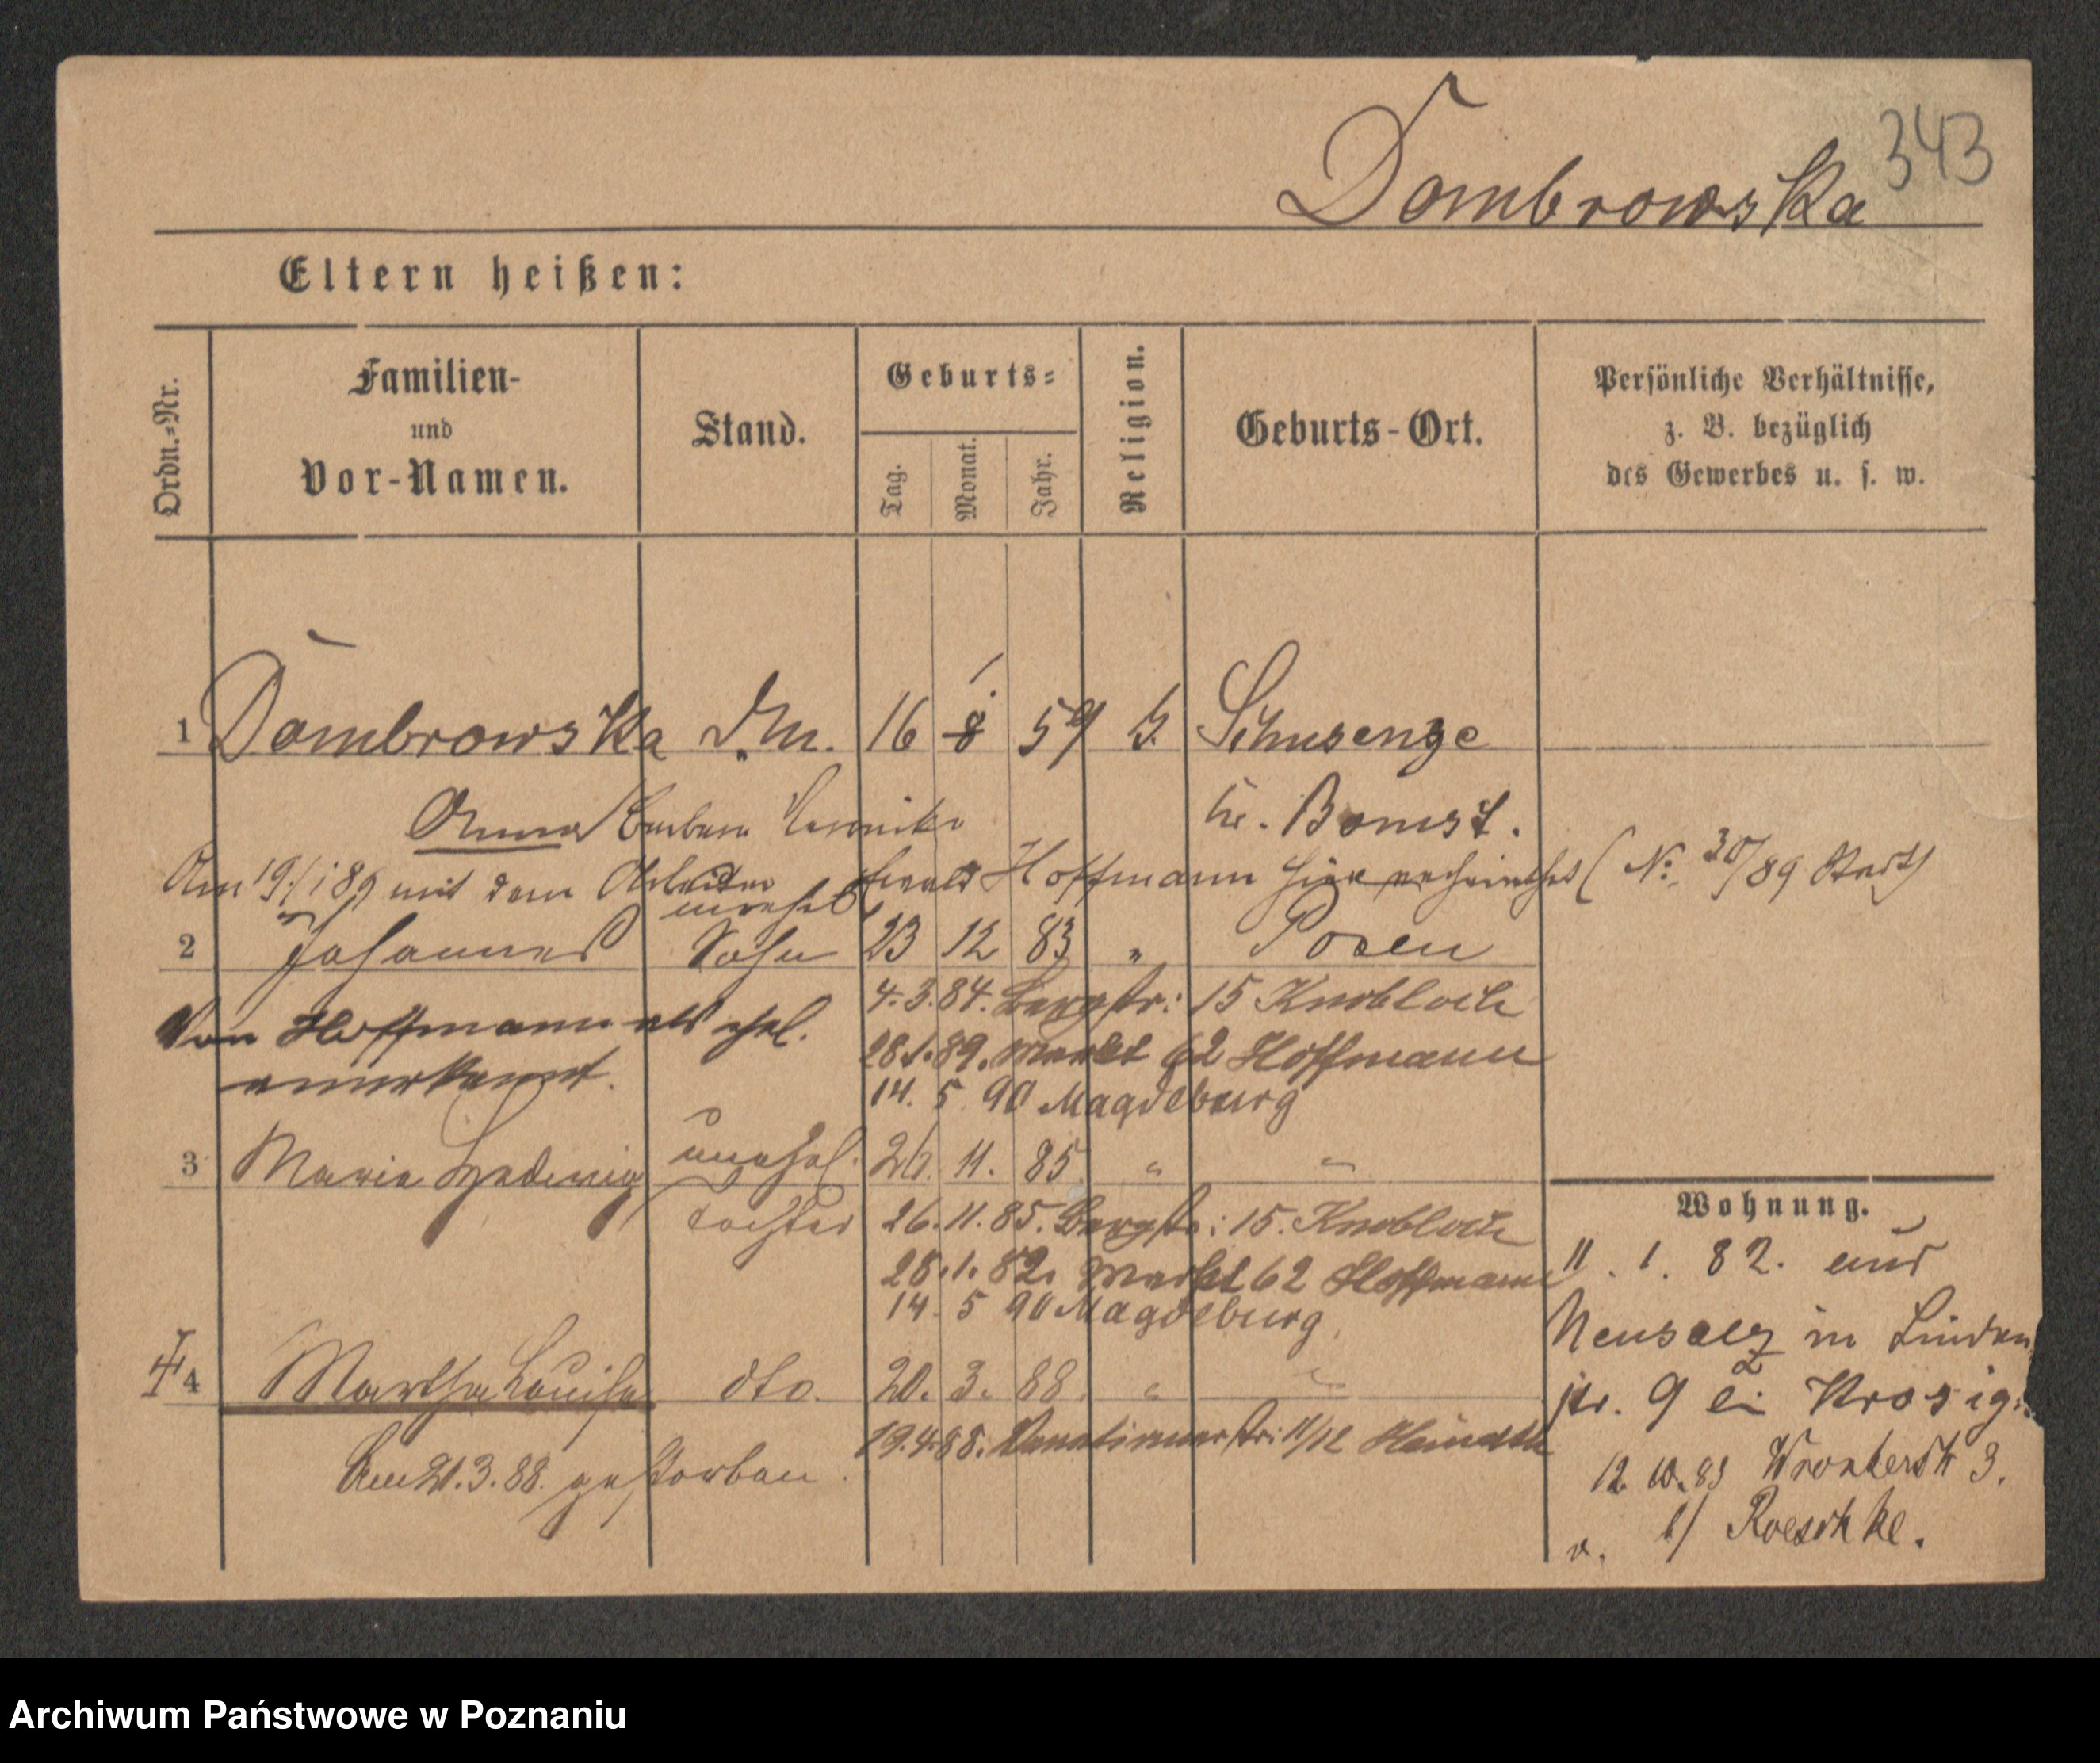 343
Dombrowska
Eltern heißen:
Ordn.-Nr.
Familien-
und
Vor-Namen.
Stand.
Geburts-
Tag.
Monat.
Jahr.
Religion.
Geburts-Ort.
Persönliche Verhältnisse,
z. B. bezüglich
des Gewerbes u. s. w.
1 Dombrowska 16 8 59 Schusenze
Anna Barbara Veronika Kr. Bomst.
Am 19/1 89 mit dem Arbeiter Hoffmann hier verheirathet (No. 30/89 Stadt)
unehel.
2 Johannes Sohn 23 12 83 " Posen
4.3.84. Bergstr: 15 Knobloch
Von Hoffmann als ehel.
anerkannt.
28.1.89. Markt 62 Hoffmann
14. 5 90 Magdeburg
3 Maria Hedwig unehel. 26. 11. 85 " "
Tochter
26.11.85. Bergstr: 15. Knobloch
28.1.82. Markt 62 Hoffmann
14. 5 90 Magdeburg.
4 Martha Louise dto. 20. 3. 88 " "
Am 21.3.88. gestorben.
19.4.88. 11/12
Wohnung.
11. 1. 82. aus
Neusalz in Linden
str. 9 bei
12. 10. 83 Wronkerstr 3.
b/ Roeschke.
Archiwum Państwowe w Poznaniu